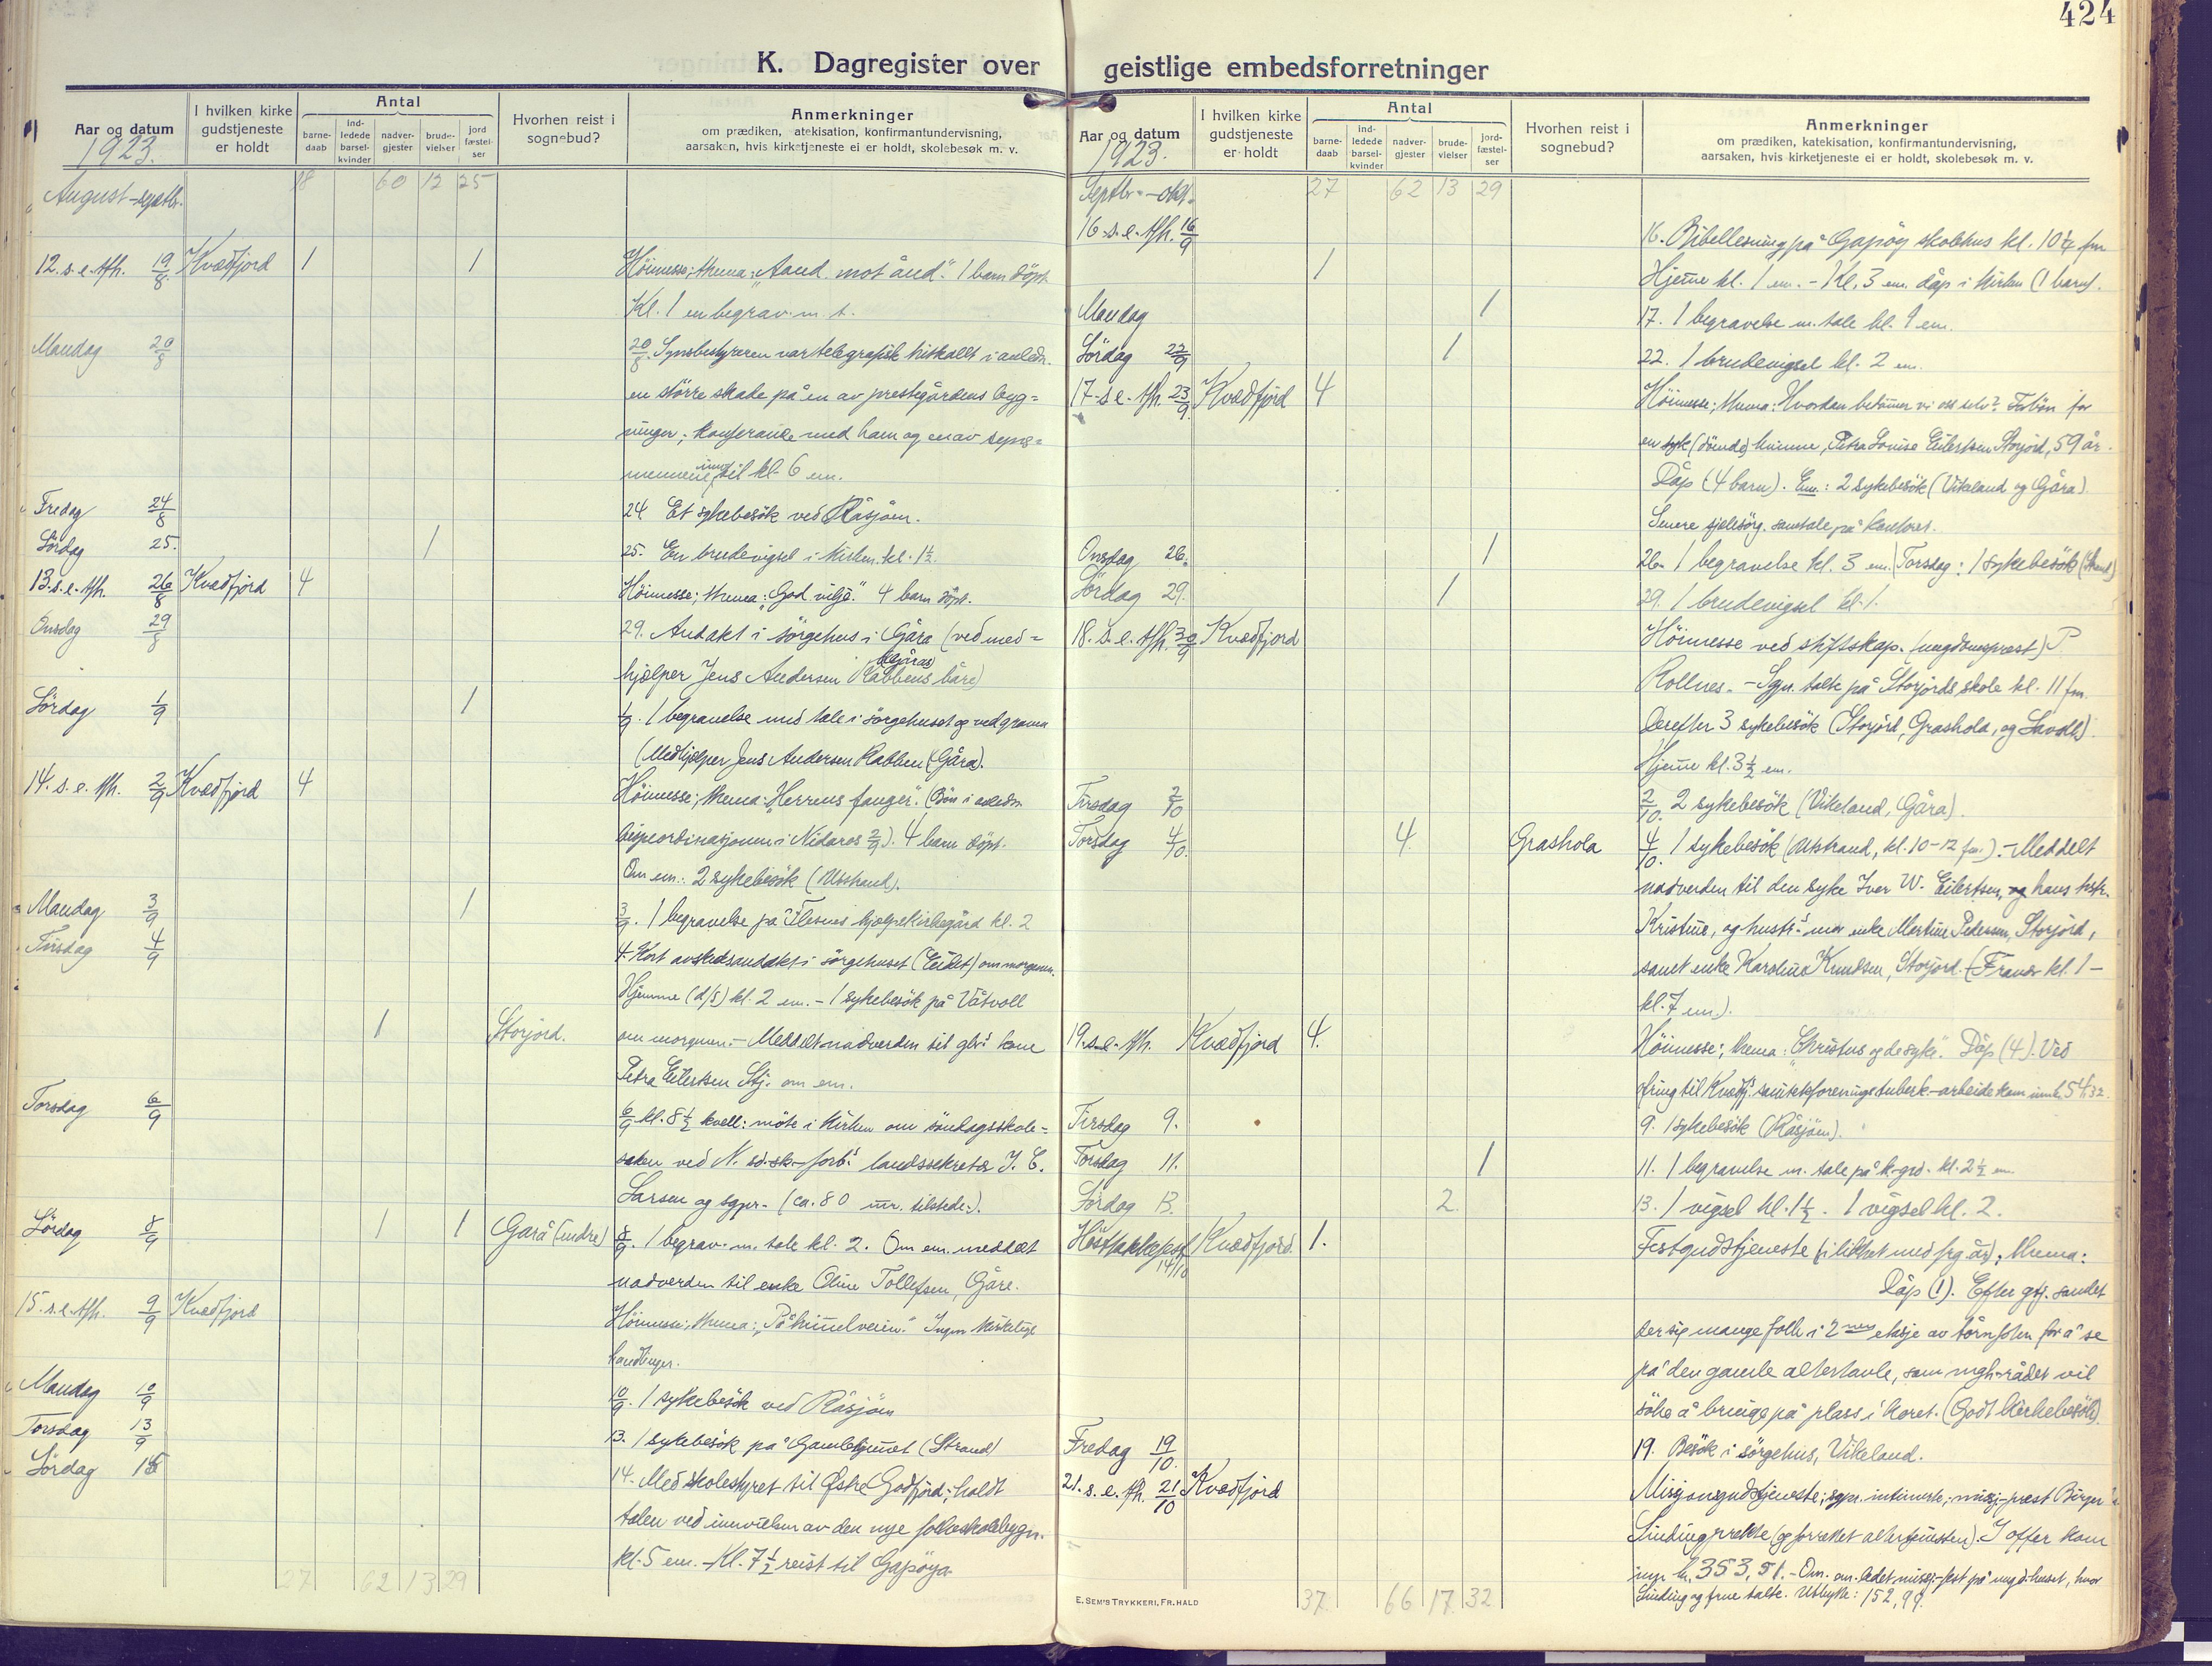 424
K. Dagregister over geistlige embedsforretninger
Aar og datum
1923.
I hvilken kirke gudstjeneste er holdt
Antal
barnedaab
indledede barselkvinder
nadvergjester
brudevielser
jordfæstelser
Hvorhen reist i sognebud?
Anmerkninger
om prædiken, katekisation, konfirmantundervisning,
aarsaken, hvis kirketjeneste ei er holdt, skolebesøk m. v.
August-septbr. 18 60 12 25
12. s. e. tfh. 19/8 Kvædfjord 1 1 Höimesse; thema: "Aand mot ånd". 1 barn döpt.
Kl. 1 en begrav. m. t.
Mandag 20/8 20/8. Synsbestyreren var telegrafisk hitkallt i anledn.
en större skade på en av prestegårdens byg=
ninger; konferanse med ham og en av syns=
mennene til kl. 6 em.
Fredag 24/8 24 Et sykebesök ved Råsjöen.
Lördag 25. 1 25. En brudevigsel i kirken kl. 1½
13. s. e. tfh. 26/8 Kvædfjord 4 Höimesse; thema: "God vilje". 4 barn döpt.
Onsdag 29/8 29. Andakt i sörgehus i Gåra (ved med=
hjælper Jens Andersen Rabbens båre)
Lördag 1/9 1 1/9. 1 begravelse med tale i sörgehuset og ved graven
(Medhjelper Jens Andersen Rabben (Gåra).
14. s. e. tfh. 2/9 Kvædfjord 4 Höimesse; thema: "Herrens fanger". (Bön i anledn.
bispeordinasjonen i Nidaros 2/9). 4 barn döpt.
Om em.: 2 sykebesök (Utstrand).
Mandag 3/9 1 3/9. 1 begravelse på Flesnes hjælpekirkegård kl. 2
Tirsdag 4/9 4. Kort avskedsandakt i sörgehuset (Eidet) om morgenen.
Hjemme (d/s) kl. 2 em. - 1 sykebesök på Våtvoll
1 Storjord. om morgenen. - Meddelt nadverden til kone
Petra Eilertsen Stj. om em.
Torsdag 6/9 6/9 kl. 8½ kvell: möte i kirken om söndagsskole=
saken ved N. sd.sk-forb.s landssekretær J. E.
Larsen og sgpr. (ca. 80 tilstede.).
Lördag 8/9 1 1 Gårå (indre) 8/9. 1 begrav. m. tale kl. 2. Om em. meddelt
nadverden til enke Oline Tollefsen, Gåre.
15. s. e. tfh. 9/9 Kvædfjord Höimesse; thema: "På himmelveien." Ingen kirkelige
handlinger.
Mandag 10/9 10/9. 1 sykebesök ved Råsjöen
Torsdag 13/9 13. 1 sykebesök på Gamlehjemmet (Strand)
Lördag 15 14. Med skolestyret til Østre Godfjord; holdt
talen ved innvielsen av den nye folkeskolebygn.
kl. 5 em. - Kl. 7½ reist til Gapöya
27 62 13 29
Aar og datum
1923.
I hvilken kirke gudstjeneste er holdt
Antal
barnedaab
indledede barselkvinder
nadvergjester
brudevielser
jordfæstelser
Hvorhen reist i sognebud?
Anmerkninger
om prædiken, katekisation, konfirmantundervisning,
aarsaken, hvis kirketjeneste ei er holdt, skolebesøk m. v.
Septbr. - okt. 27 62 13 29
16. s. e. tfh. 16/9 16. Bibellesning på Gapöy skolehus kl. 10¼ fm
1 Hjemme kl. 1 em. - Kl. 3 em. dåp i kirken (1 barn).
Mandag 1 17. 1 begravelse m. tale kl. 1 em.
Lördag 22/9 1 22. 1 brudevigsel kl. 2 em.
17. s. e. tfh. 23/9 Kvædfjord 4 Höimesse; thema: Hvordan bedömer vi oss selv? Forbön for
en syk (döende) kvinne, Petra Lovise Eilertsen Storjord, 59 år.
Dåp (4 barn). Em.: 2 sykebesök (Vikeland og Gåra).
Senere sjelesörg. samtale på kontoret.
Onsdag 26. 1 26. 1 begravelse kl. 3 em. Torsdag: 1 sykebesök
Lördag 29. 1 29. 1 brudevigsel kl. 1.
18. s. e. tfh. 30/9 Kvædfjord Höimesse ved stiftskap. (ungdomsprest) P.
Rollnes. - Sgpr. talte på Storjords skole kl. 11 fm.
Derefter 3 sykebesök (Storjord, Grashola, og).
Hjemme kl. 3½ em.
Tirsdag 2/10 2/10. 2 sykebesök (Vikeland, Gåra).
Torsdag 4/10. 4 Grashola 4/10. 1 sykebesök (Utstrand, kl. 10-12 fm.). - Meddelt
nadverden til den syke Iver W. Eilertsen, og hans hstr.
Kristine, og hustr.s mor enke Mertine Pedersen, Storjord,
samt enke Karoline Knutsen, Storjord. (Fravær kl. 1 -
kl. 7 em.).
19. s. e. tfh. Kvædfjord 4. Höimesse; thema: "Christus og de syke". Dåp (4). Ved
ofring til Kvædfj. sanitetsforenings tuberk.-arbeide kom inn kr. 54,32.
Tirsdag 9. 9. 1 sykebesök (Råsjöen).
Torsdag 11. 1 11. 1 begravelse m. tale på k-grd. kl. 2½ em.
Lördag 13. 2. 13. 1 vigsel kl. 1½. 1 vigsel kl. 2.
Hösttakkefest 14/10 Kvædfjord. 1. Festgudstjeneste (i likhet med frg. år); thema:
Dåp (1). Efter gtj. samlet
der sig mange folk i 2nen etasje av tårnfoten for å se
på den gamle altertavle, som mgh-rådet vil
söke å bringe på plass i koret. (Godt kirkebesök)
Fredag 19/10. 19. Besök i sörgehus, Vikeland.
21. s. e. tfh. 21/10 Kvædfjord Misjonsgudstjeneste; sgpr. intimerte; misj-prest Birger
Sinding prekte (og forrettet altertjenesten). I offer kom
inn kr. 353,51. - Om em. ledet misj-fest på ungd.huset, hvor
Sinding og frue talte. Utbytte: 152,99.
37. 66 17 32
E. SEM'S TRYKKERI, FR.HALD